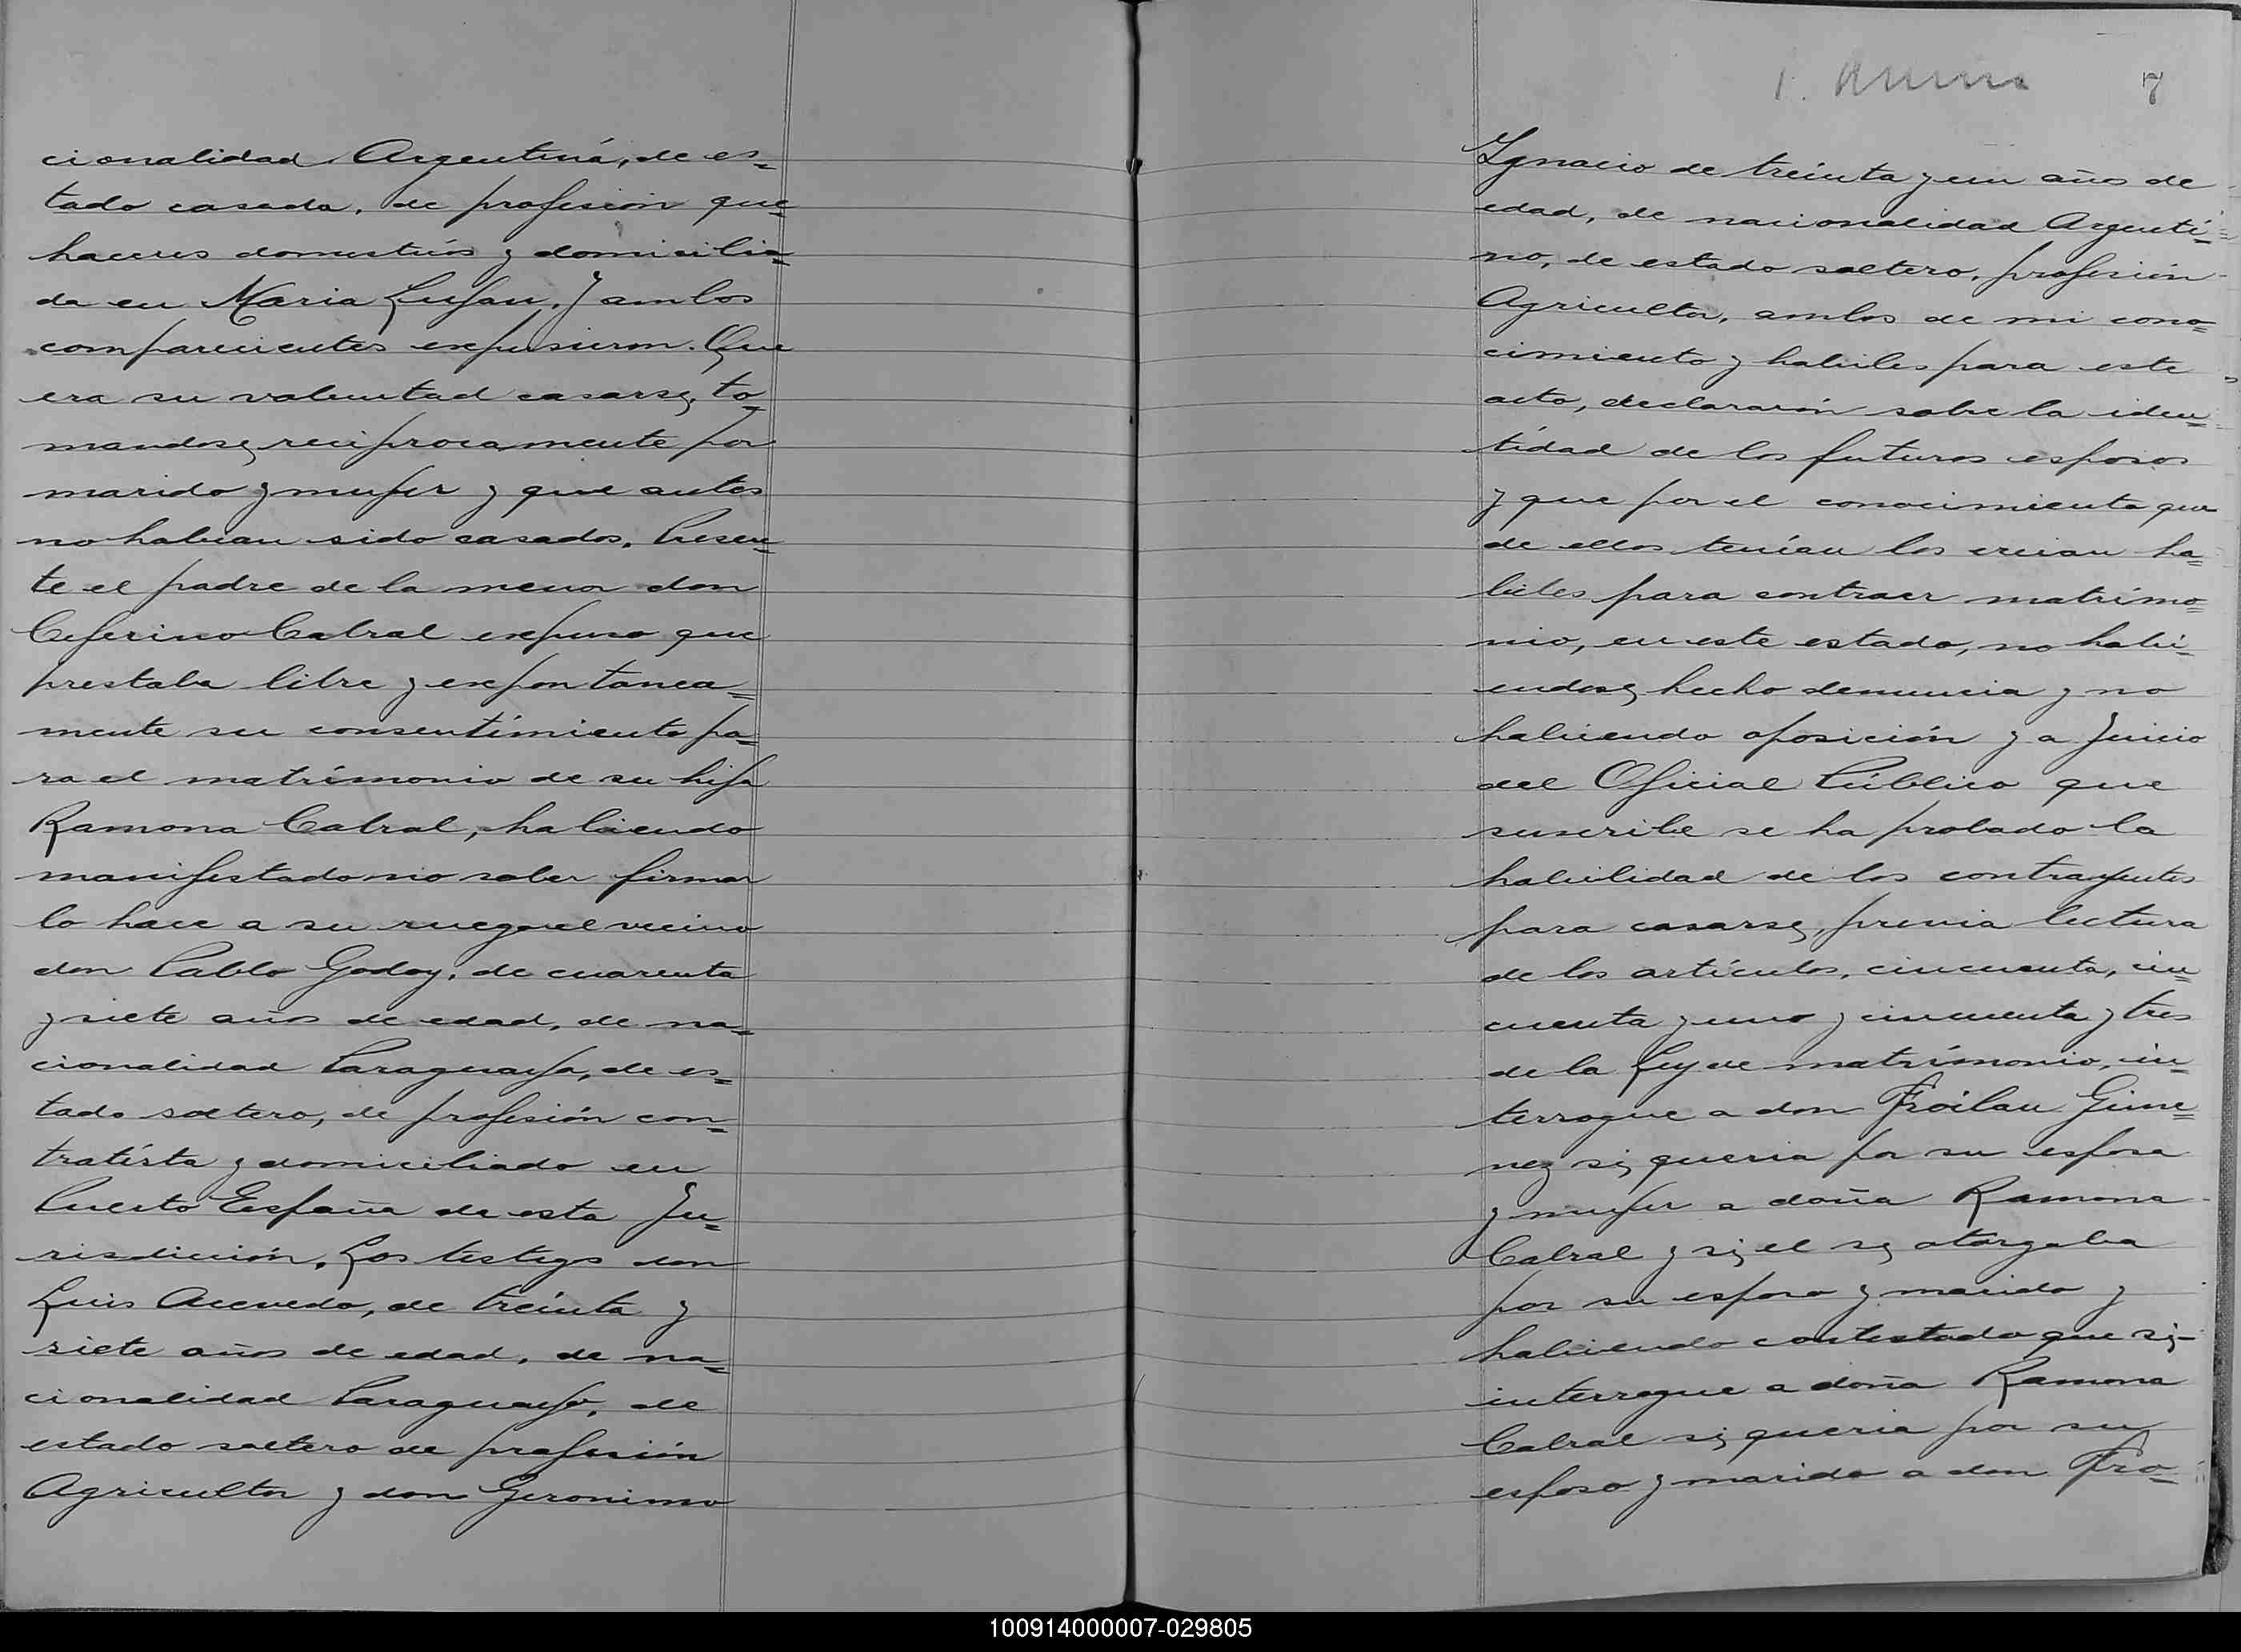 cionalidad Argentiná, de es=
tado casada, de profesión que=
haceres domesticós y domicilia=
da en Maria Lujan. Y ambos
comparecientes expusieron. Que
era su voluntad casarse, to=
mandose reciprocamente por
marido y mujer y que antes
no habian sido casados. Presen=
te el padre de la menor don
Ceferino Cabral expuso que
prestaba libre y expontanea=
mente su consentimiento pa=
ra el matrimonio de su hija
Ramona Cabral, habiendo
manifestado no saber firmar
lo hace a su ruego el vecino
don Pablo Godoy, de cuarenta
y siete años de edad, de na=
cionalidad Paraguaya, de es=
tado soltero, de profesión con=
tratista y domiciliado en
Puerto España de esta Ju=
risdicción. Los testigos don
Luis Acevedo, de treinta y
siete años de edad, de na=
cionalidad Paraguayo, de
estado soltero de profesión
Agricultor y don Geronimo
7
Ygnacio de treinta y un años de
edad, de nacionalidad Argenti=
no, de estado soltero, profesión
Agricultor, ambos de mi cono=
cimiento y habiles para este
acto, declararón sobre la iden=
tidad de los futuros esposos
y que por el conocimiento que
de ellos tenían los creian ha=
biles para contraer matrimo=
nio, en este estado, no habi=
endose hecho denuncia y no
habiendo oposición y a Juicio
del Oficial Público que
suscribe se ha probado la
habilidad de los contrayentes
para casarse, previa lectura
de los artículos, cincuenta, cin=
cuenta y uno y cincuenta y tres
de la Ley de matrimonio, in=
terrogue a don Froilan Gime=
nez si queria por su esposa
y mujer a doña Ramona
Cabral y si el se otorgaba
por su esposo y marido y
habiendo contestado que si-
interrogue a doña Ramona
Cabral si queria por su
esposo y marido a don Fro=
100914000007-029805